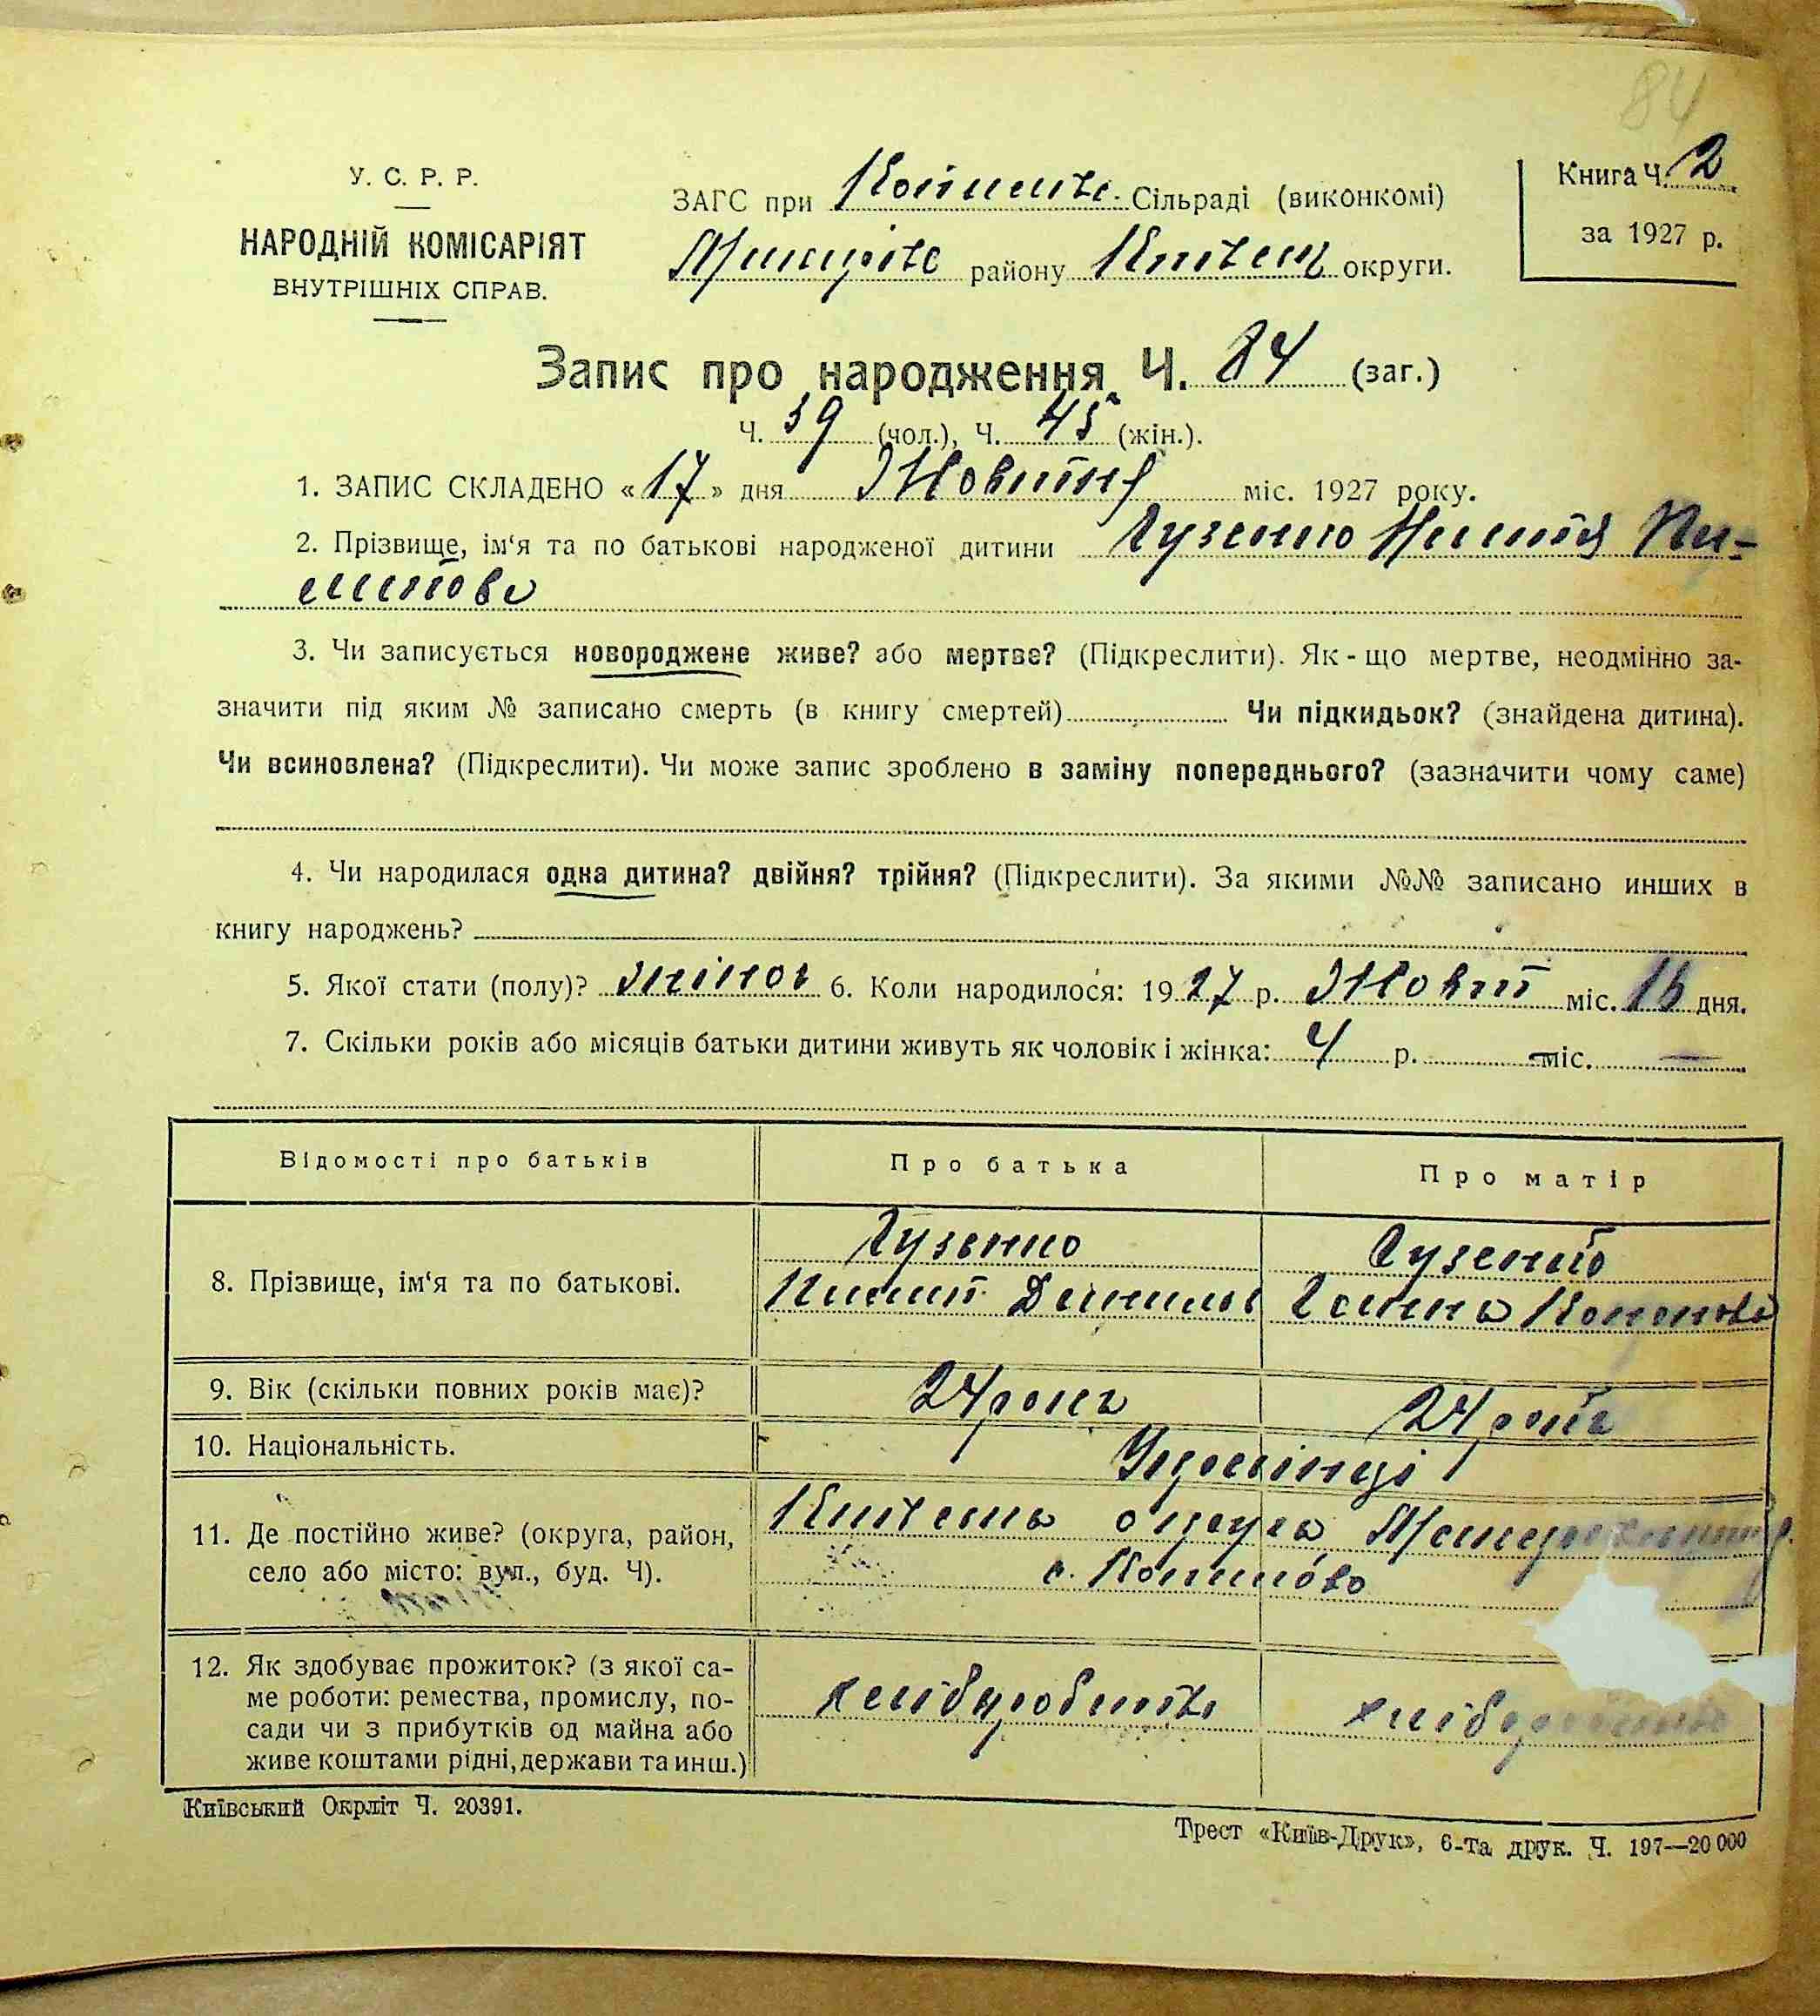 84
У. С. Р. Р.
НАРОДНІЙ КОМІСАРІЯТ
ВНУТРІШНІХ СПРАВ.
ЗАГС при Сільраді (виконкомі)
району округи.
Книга Ч. 2
за 1927 р.
Запис про народження Ч. 84 (заг.)
Ч. 39 (чол.), Ч. 45 (жін.).
1. ЗАПИС СКЛАДЕНО «17» дня Жовтня міс. 1927 року.
2. Прізвище, ім'я та по батькові народженої дитини Гузенко
3. Чи записується новороджене живе? або мертве? (Підкреслити). Як-що мертве, неодмінно за-
значити під яким № записано смерть (в книгу смертей) Чи підкидьок? (знайдена дитина).
Чи всиновлена? (Підкреслити). Чи може запис зроблено в заміну попереднього? (зазначити чому саме)
4. Чи народилася одна дитина? двійня? трійня? (Підкреслити). За якими №№ записано инших в
книгу народжень?
5. Якої стати (полу)? жіноч 6. Коли народилося: 1927 р. Жовт міс. 16 дня.
7. Скільки років або місяців батьки дитини живуть як чоловік і жінка: 4 р. — міс. —
Відомості про батьків Про батька Про матір
8. Прізвище, ім'я та по батькові.
Гузенко Гузенко
Данилов Ганна Кононова
9. Вік (скільки повних років має)? 24 роки 24 роки
10. Національність. Українці
11. Де постійно живе? (округа, район,
село або місто: вул., буд. Ч).
округа
с.
12. Як здобуває прожиток? (з якої са-
ме роботи: ремества, промислу, по-
сади чи з прибутків од майна або
живе коштами рідні, держави та инш.)
хліборобств
Київський Окрліт Ч. 20391.
Трест «Київ-Друк», 6-та друк. Ч. 197—20 000